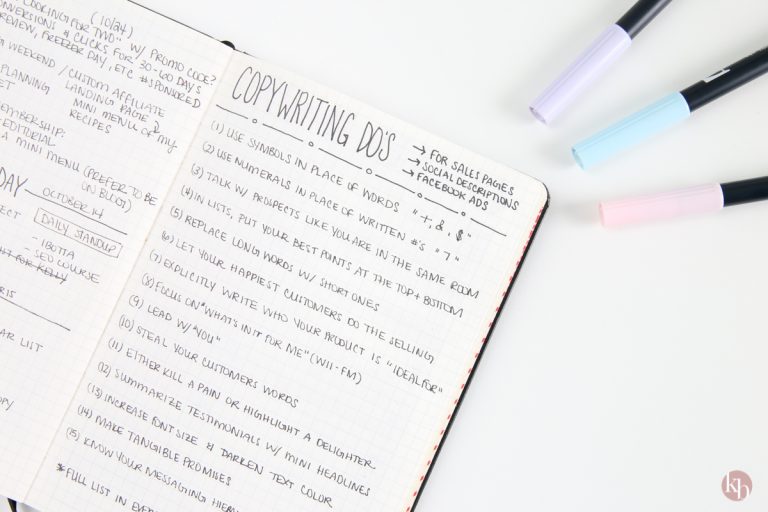 COOKING FOR TWO" W/ PROMO CODE?
(10/24)
CONVERSIONS & CLICKS FOR 30-60 DAYS
REVIEW, FREEZER DAY, ETC #SPONSORED
WEEKEND / CUSTOM AFFILIATE
LANDING PAGE &
MINI MENU OF MY
RECIPES
PLANNING
MEMBERSHIP:
EDITORIAL
A MINI MENU (PREFER TO BE
ON BLOG)
DAY
OCTOBER 14
DAILY STANDUP
- IBOTTA
- SEO COURSE
FOR KELLY
LIST
COPYWRITING DO'S
→ FOR SALES PAGES
→ SOCIAL DESCRIPTIONS
→ FACEBOOK ADS
(1) USE SYMBOLS IN PLACE OF WORDS "+, &, $"
(2) USE NUMERALS IN PLACE OF WRITTEN #'S "7"
(3) TALK W/ PROSPECTS LIKE YOU ARE IN THE SAME ROOM
(4) IN LISTS, PUT YOUR BEST POINTS AT THE TOP + BOTTOM
(5) REPLACE LONG WORDS W/ SHORT ONES
(6) LET YOUR HAPPIEST CUSTOMERS DO THE SELLING
(7) EXPLICITLY WRITE WHO YOUR PRODUCT IS "IDEAL FOR"
(8) FOCUS ON "WHAT'S IN IT FOR ME" (WII-FM)
(9) LEAD W/ "YOU"
(10) STEAL YOUR CUSTOMERS WORDS
(11) EITHER KILL A PAIN OR HIGHLIGHT A DELIGHTER
(12) SUMMARIZE TESTIMONIALS W/ MINI HEADLINES
(13) INCREASE FONT SIZE & DARKEN TEXT COLOR
(14) MAKE TANGIBLE PROMISES
(15) KNOW YOUR MESSAGING
*FULL LIST IN
kb